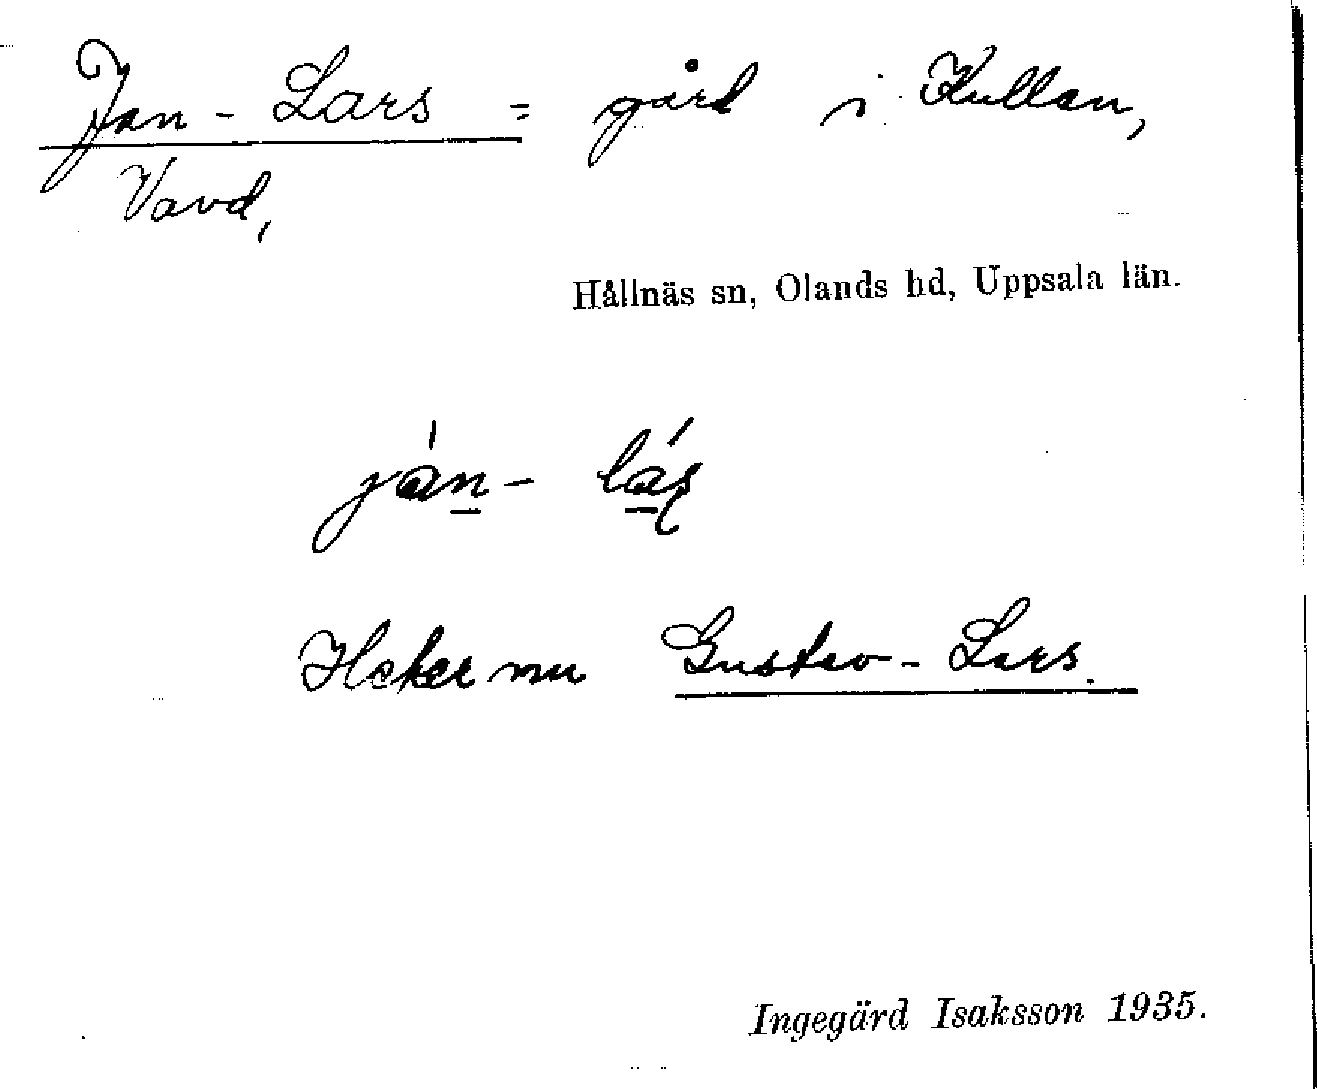 Jan-Lars = gård i Kullen,
Vavd,
Hållnäs sn, Olands hd, Uppsala län.
ján- lás
Heter nu Gustav-Lars.
Ingegärd Isaksson 1935.